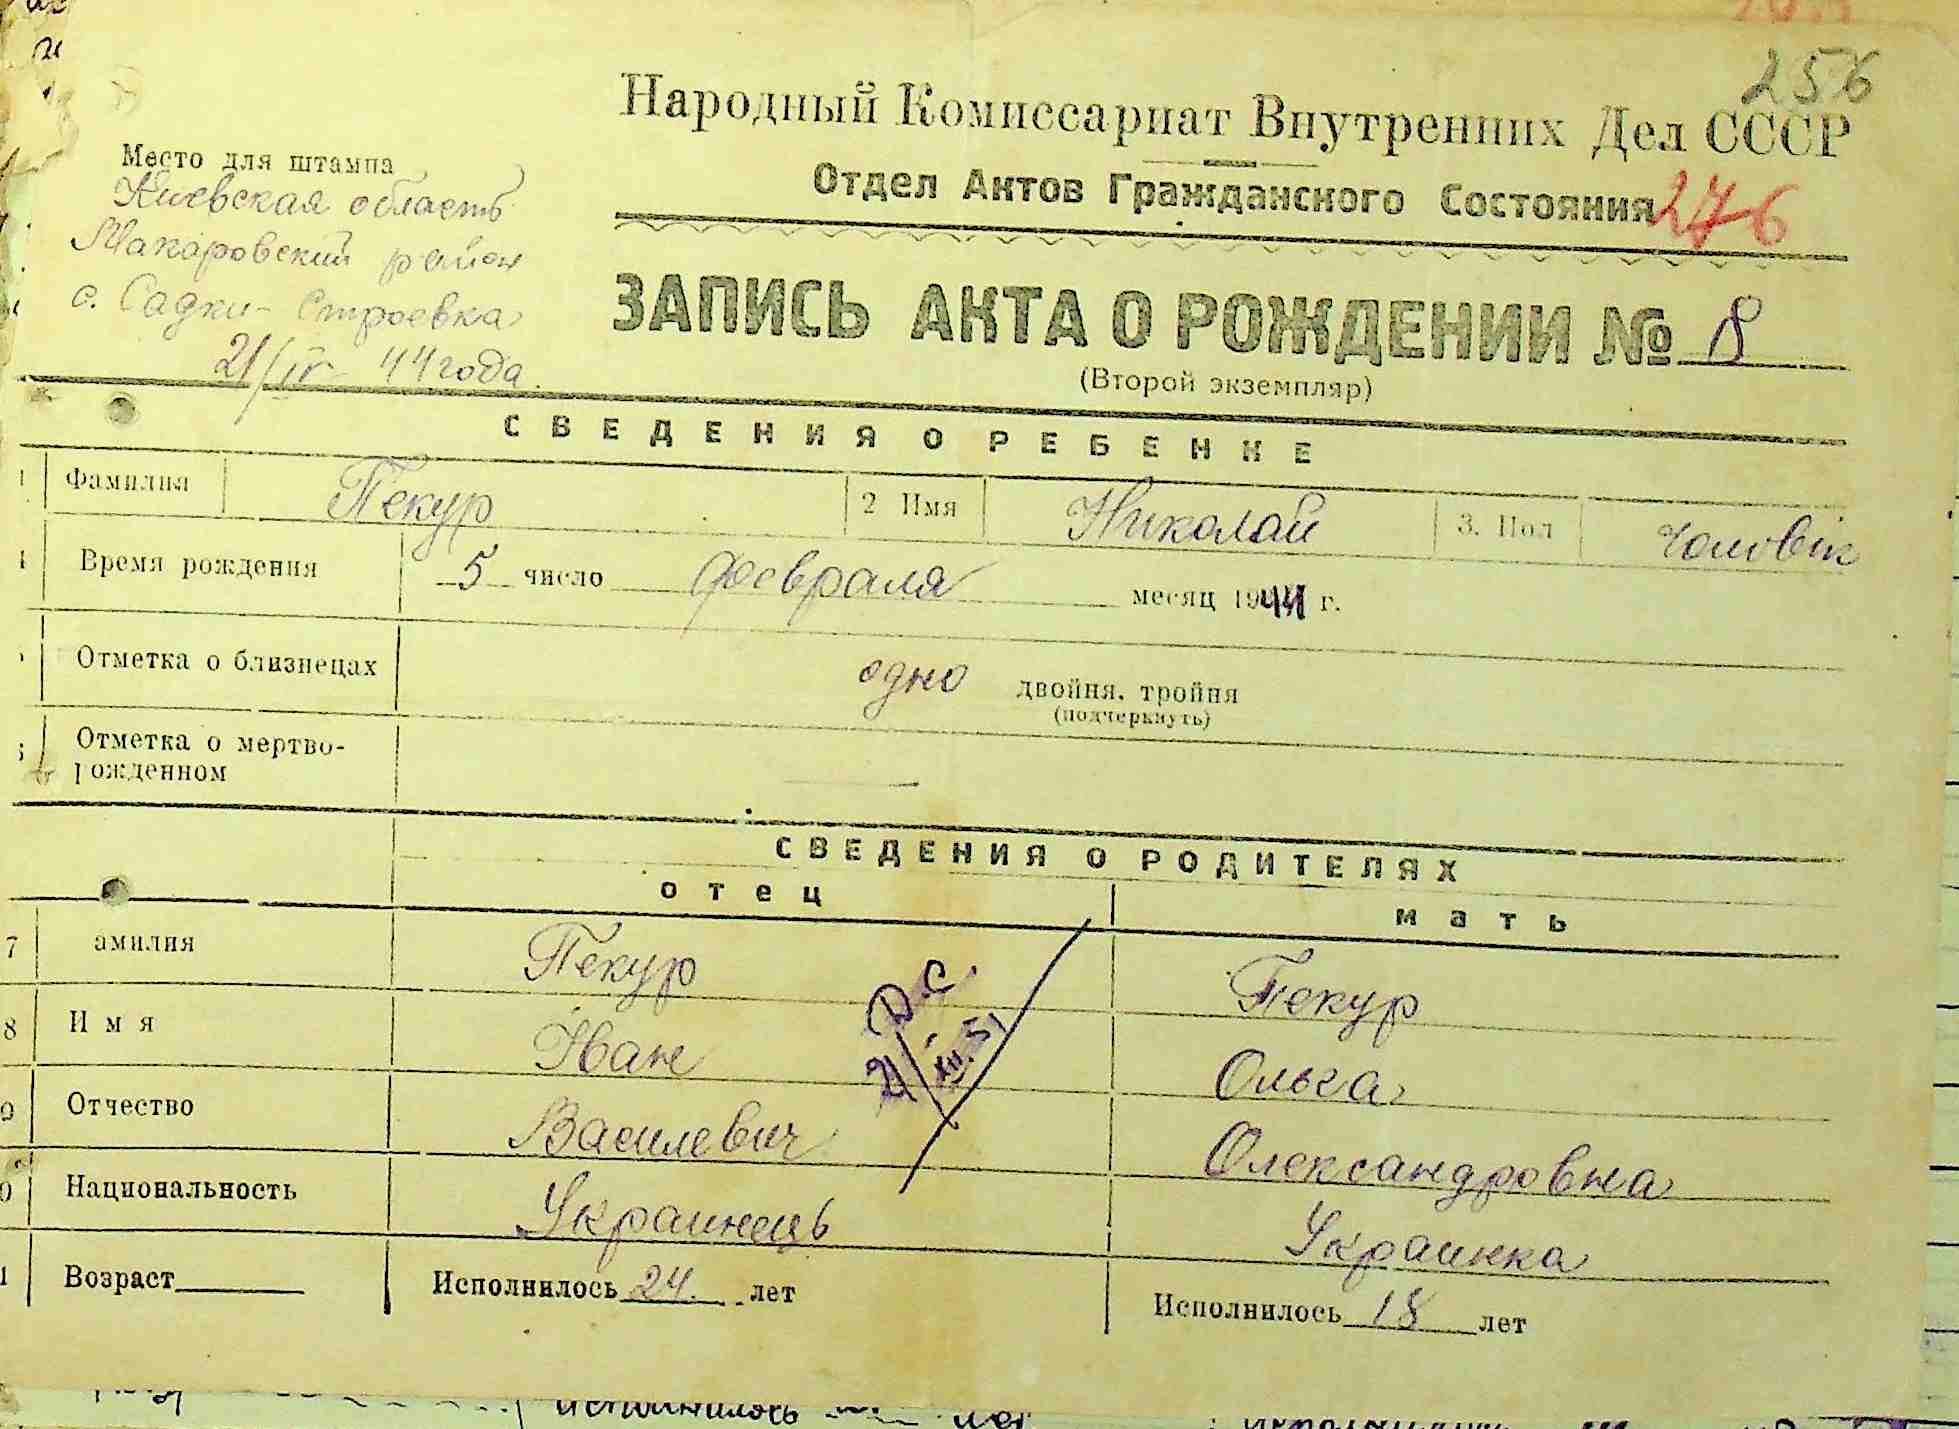 256
Народный Комиссариат Внутренних Дел СССР
Отдел Актов Гражданского Состояния
276
Место для штампа
Киевская область
Макаровский район
с. Садки-Строевка
21/IV 44 года
ЗАПИСЬ АКТА О РОЖДЕНИИ № 8
(Второй экземпляр)
СВЕДЕНИЯ О РЕБЕНКЕ
1 Фамилия Пекур 2 Имя Николай 3. Пол Чоловік
4 Время рождения 5 число февраля месяц 1944 г.
Отметка о близнецах одно двойня, тройня
(подчеркнуть)
Отметка о мертво-
рожденном —
СВЕДЕНИЯ О РОДИТЕЛЯХ
отец мать
7 амилия Пекур Пекур
8 Имя Іван Ольга
9 Отчество Василевич Олександровна
0 Национальность Украинець Украинка
1 Возраст Исполнилось 24. лет Исполнилось 18 лет
Д.С
21/XII.51
исполнилось лет